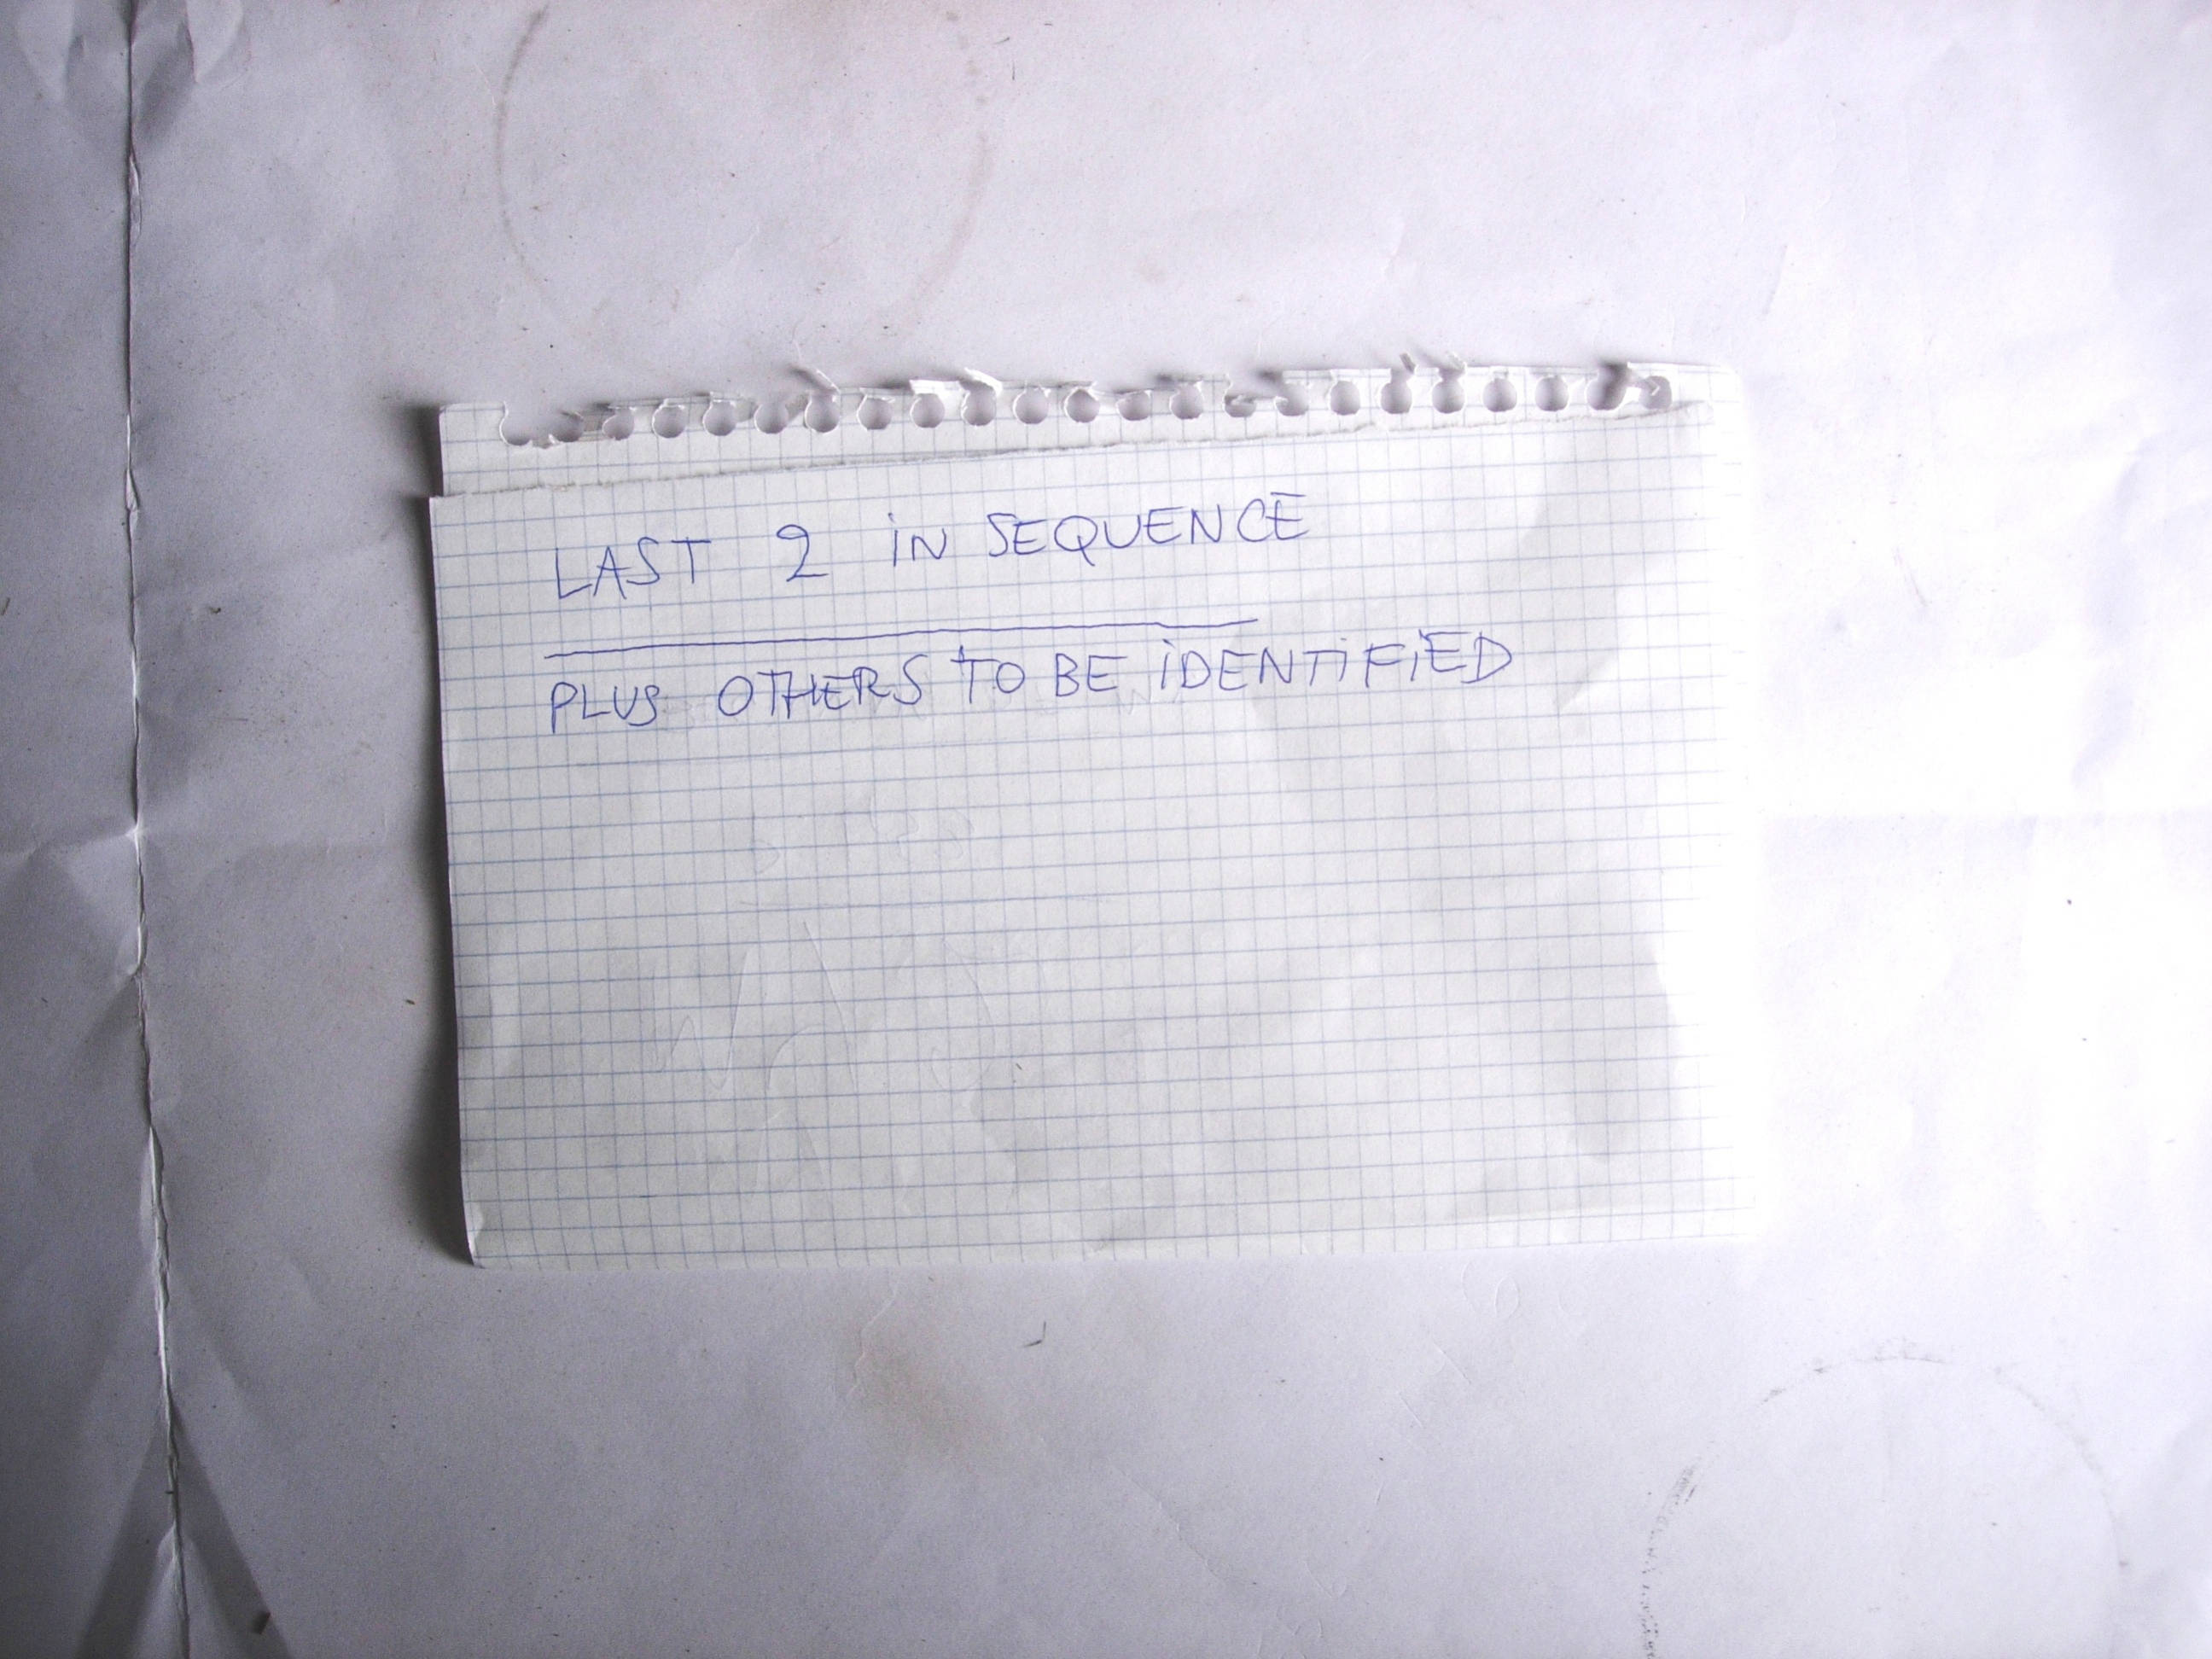 LAST 2 iN SEQUENCE
PLUS OTHERS TO BE iDENTiFiED